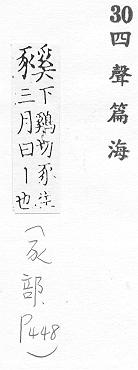 30 四聲篇海
豯 下鷄切豕
三月曰丨也
(豕部 P448)